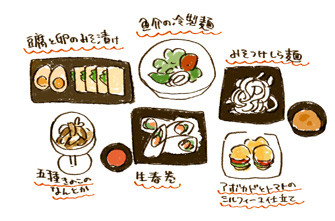 豆腐と卵のみそ漬け
魚介の冷製麺
みそつけしら麺
五種きのこの
なんとか
生春巻
アボカドとトマトの
ミルフィーユ仕立て